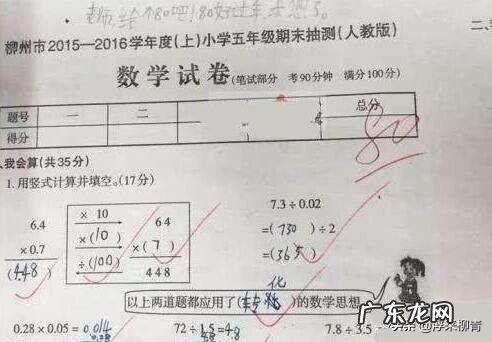 老师,给个80吧!80好过年 求您了。
柳州市2015—2016学年度(上)小学五年级期末抽测(人教版)
二、
数学试卷(笔试部分 考90分钟 满分100分)
题号 一 二 总分
得分 80
、我会算(共35分)
1. 用竖式计算并填空。(17分)
6.4
× 0.7
(4.48)
× 10
×(10)
÷(100)
6 4
×(7)
4 4 8
7.3÷0.02
=(730)÷2
=(365)
以上两道题都应用了(转化)的数学思想
0.28×0.05=0.014
72÷1.5=48
7.8÷3.5
头条 @浮木柳青
广东龙网